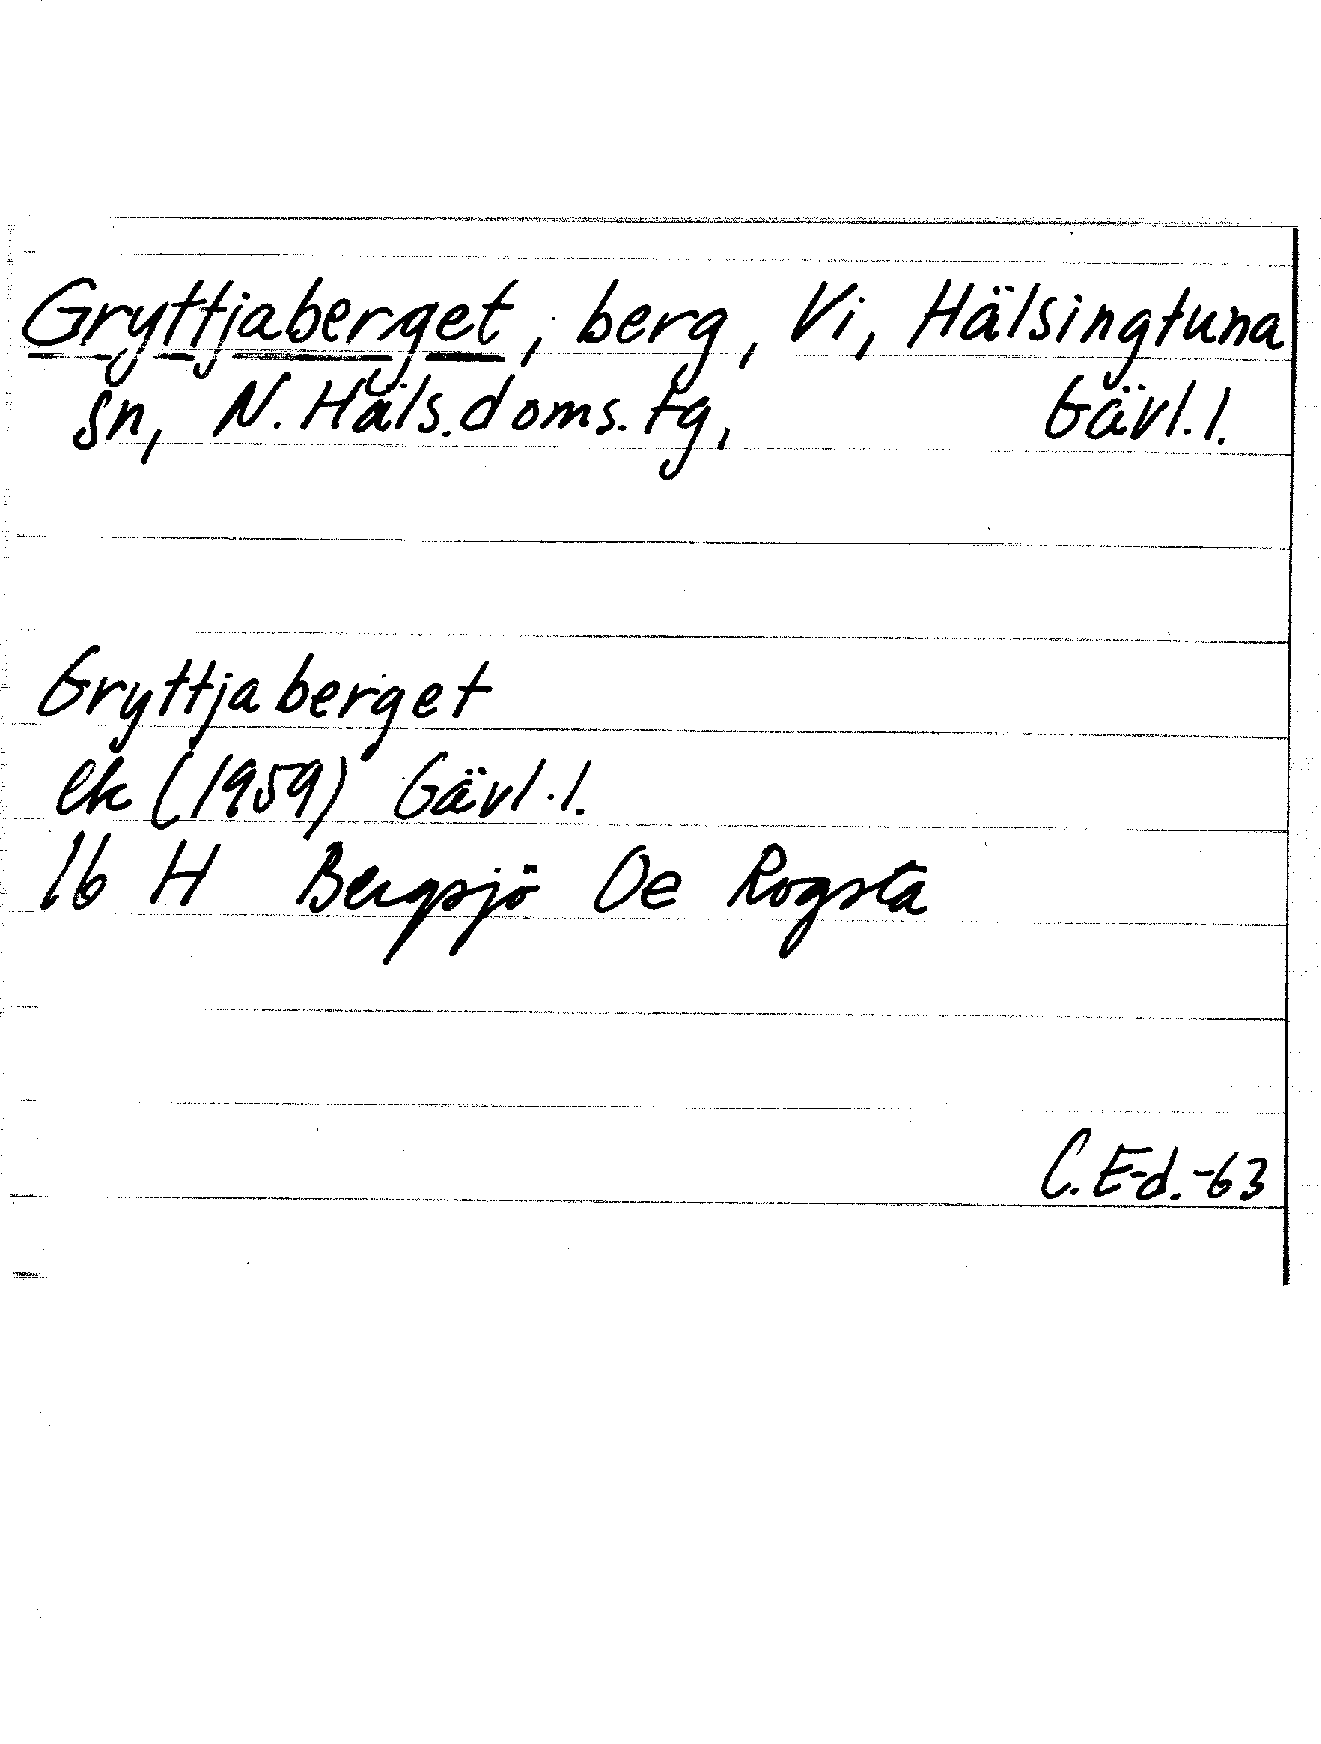 Gryttjaberget, berg, Vi, Hälsingtuna
sn, N. Häls. doms. tg, Gävl. l.
Gryttjaberget
ek (1959) Gävl. l.
16 H Bergsjö Oe Rogsta
C. E-d. -63